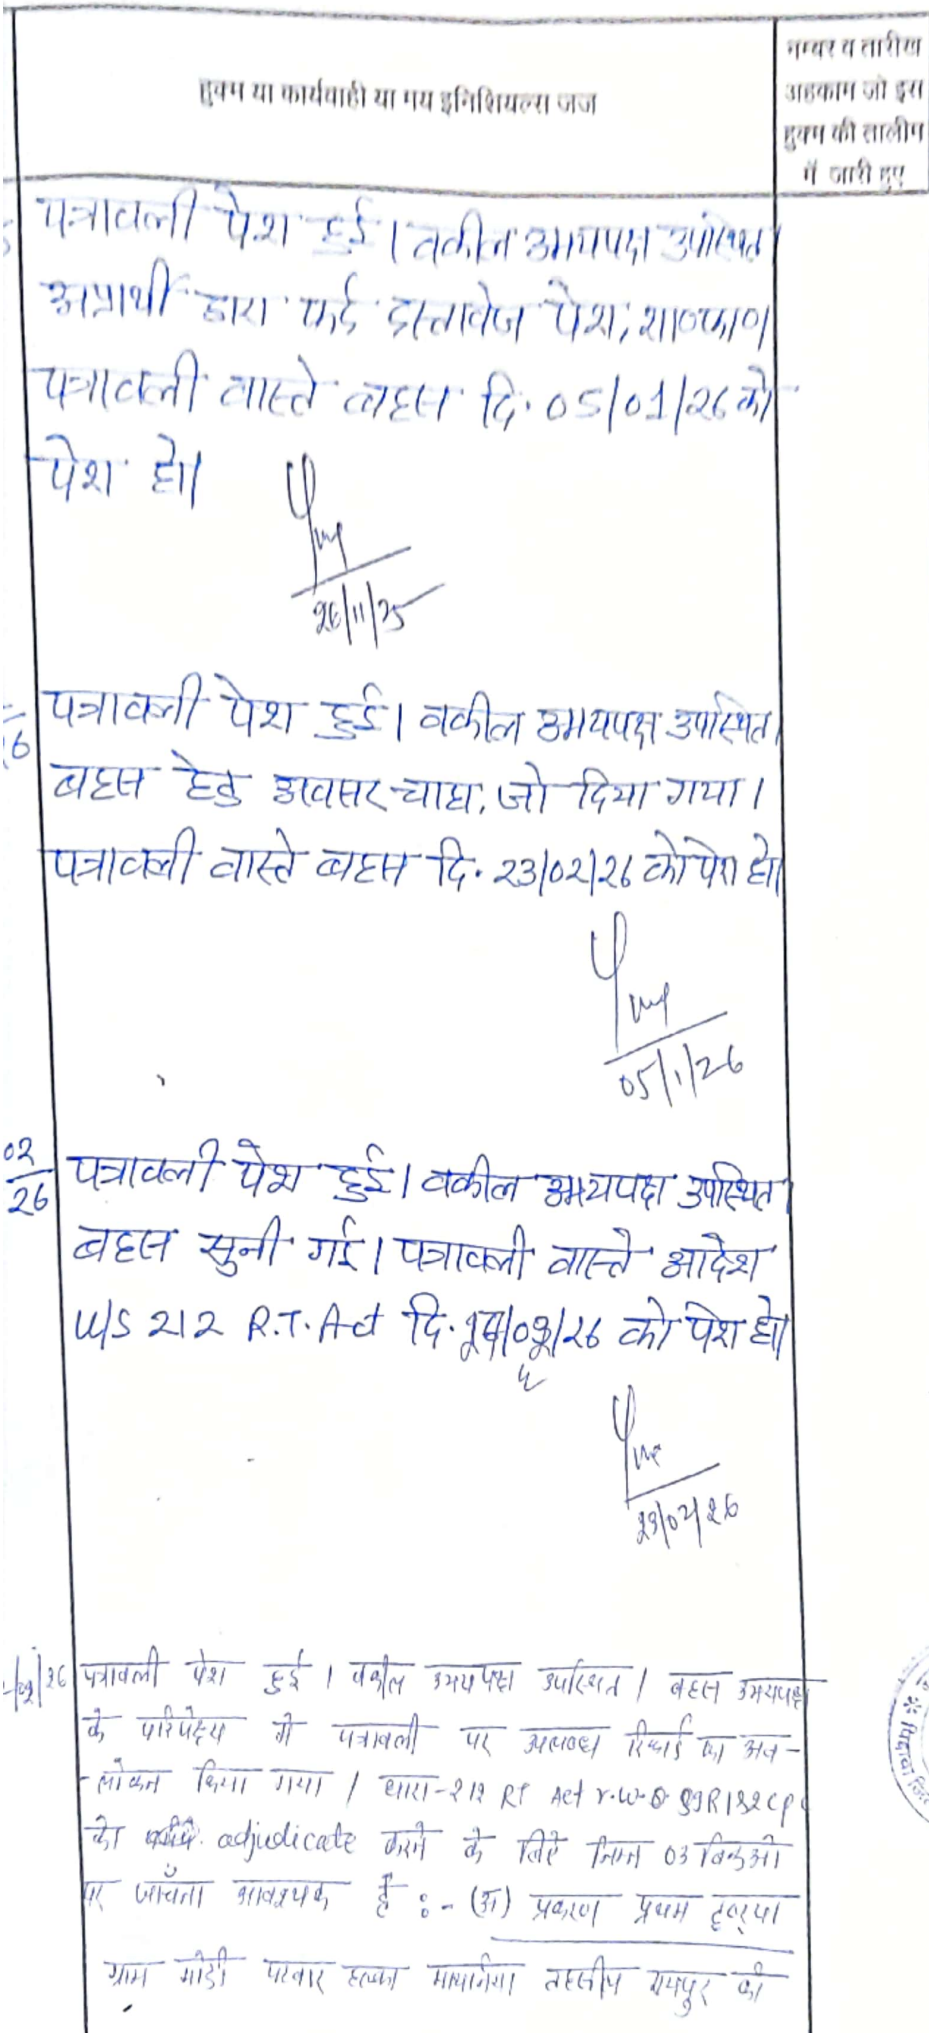 हुक्म या कार्यवाही या मय इनिशियल्स जज
नम्बर व तारीख
अहकाम जो इस
हुक्म की तालीम
में जारी हुए
पत्रावली पेश हुई। वकील उभयपक्ष उपस्थित।
अप्रार्थी द्वारा फर्द दस्तावेज पेश,
पत्रावली वास्ते बहस दि. 05/01/26 को
पेश हो।
26/11/25
6
पत्रावली पेश हुई। वकील उभयपक्ष उपस्थित।
बहस हेतु अवसर चाहा, जो दिया गया।
पत्रावली वास्ते बहस दि. 23/02/26 को पेश हो।
05/1/26
02
26
पत्रावली पेश हुई। वकील उभयपक्ष उपस्थित।
बहस सुनी गई। पत्रावली वास्ते आदेश
U/S 212 R.T. Act दि. /26 को पेश हो।
23/02/26
26 पत्रावली पेश हुई। वकील उभयपक्ष उपस्थित। बहस उभयपक्ष
के परिपेक्ष्य में पत्रावली पर उपलब्ध रिकॉर्ड का अव-
-लोकन किया गया। धारा-212 RT Act r.w.
को adjudicate करने के लिए निम्न 03 बिन्दुओं
पर जाँचना आवश्यक है :- (अ) प्रकरण प्रथम दृष्टया
ग्राम मोडी पटवार हल्का तहसील की